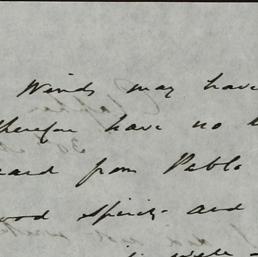 Winds may have
therefore have no
heard from Pablo
good spirits and